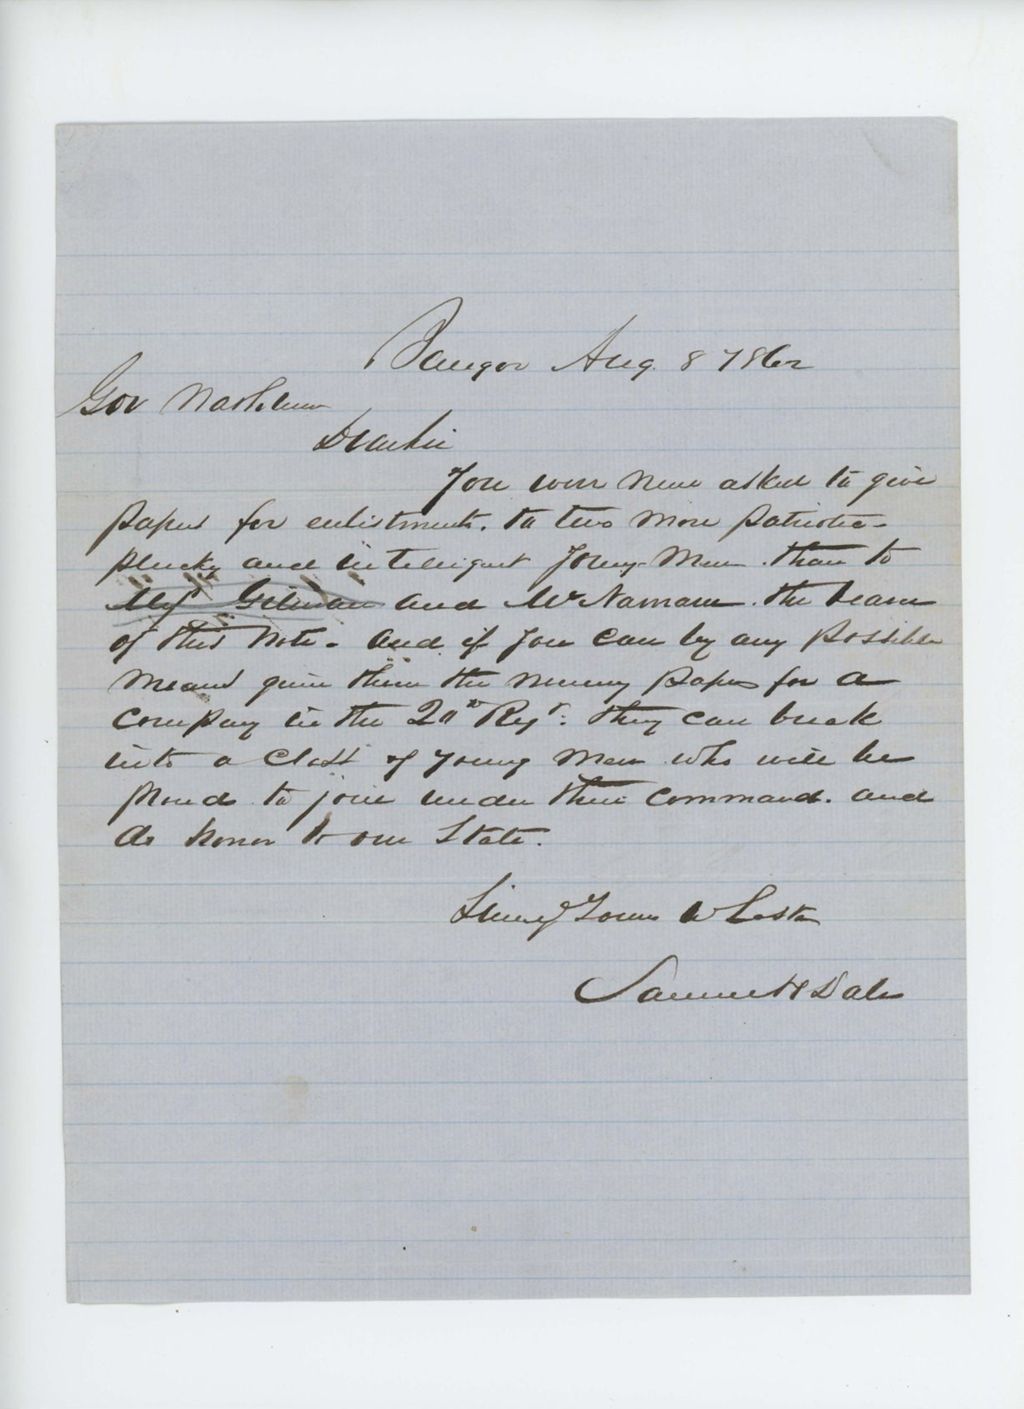 Bangor Aug. 8 1862
Gov Washburn
Dear Sir
You were never asked to give
papers for enlistments. to two more patriotic -
plucky and intelligent young men. than to
Gilman and McNamara. the bearers
of this note - and if you can by any possible
means give them the necessary papers for a
company in the Regt: they can break
into a class of young men who will be
proud to join under their command. and
do honor to our State.
Yours
Samuel H Dale